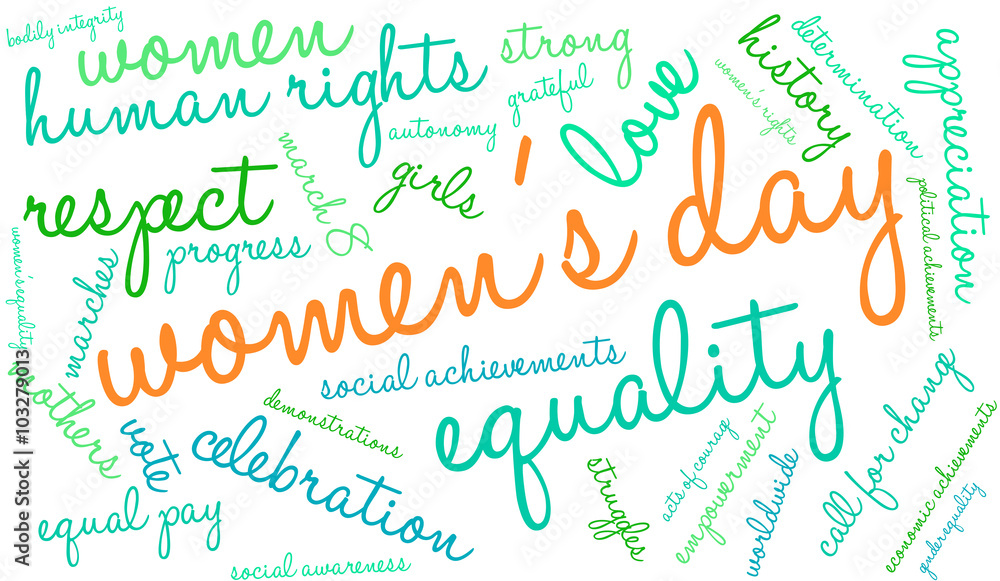 bodily integrity
women
strong
history
determination
appreciation
human rights
grateful
love
women's rights
autonomy
march 8
girls
respect
progress
women's day
political achievements
women's equality
marches
mothers
social achievements
equality
demonstrations
vote
celebration
equal pay
social awareness
struggles
acts of courag
empowerment
worldwide
call for chang
economic achievements
gnderequality
Adobe Stock | #103279013
Adobe Stock